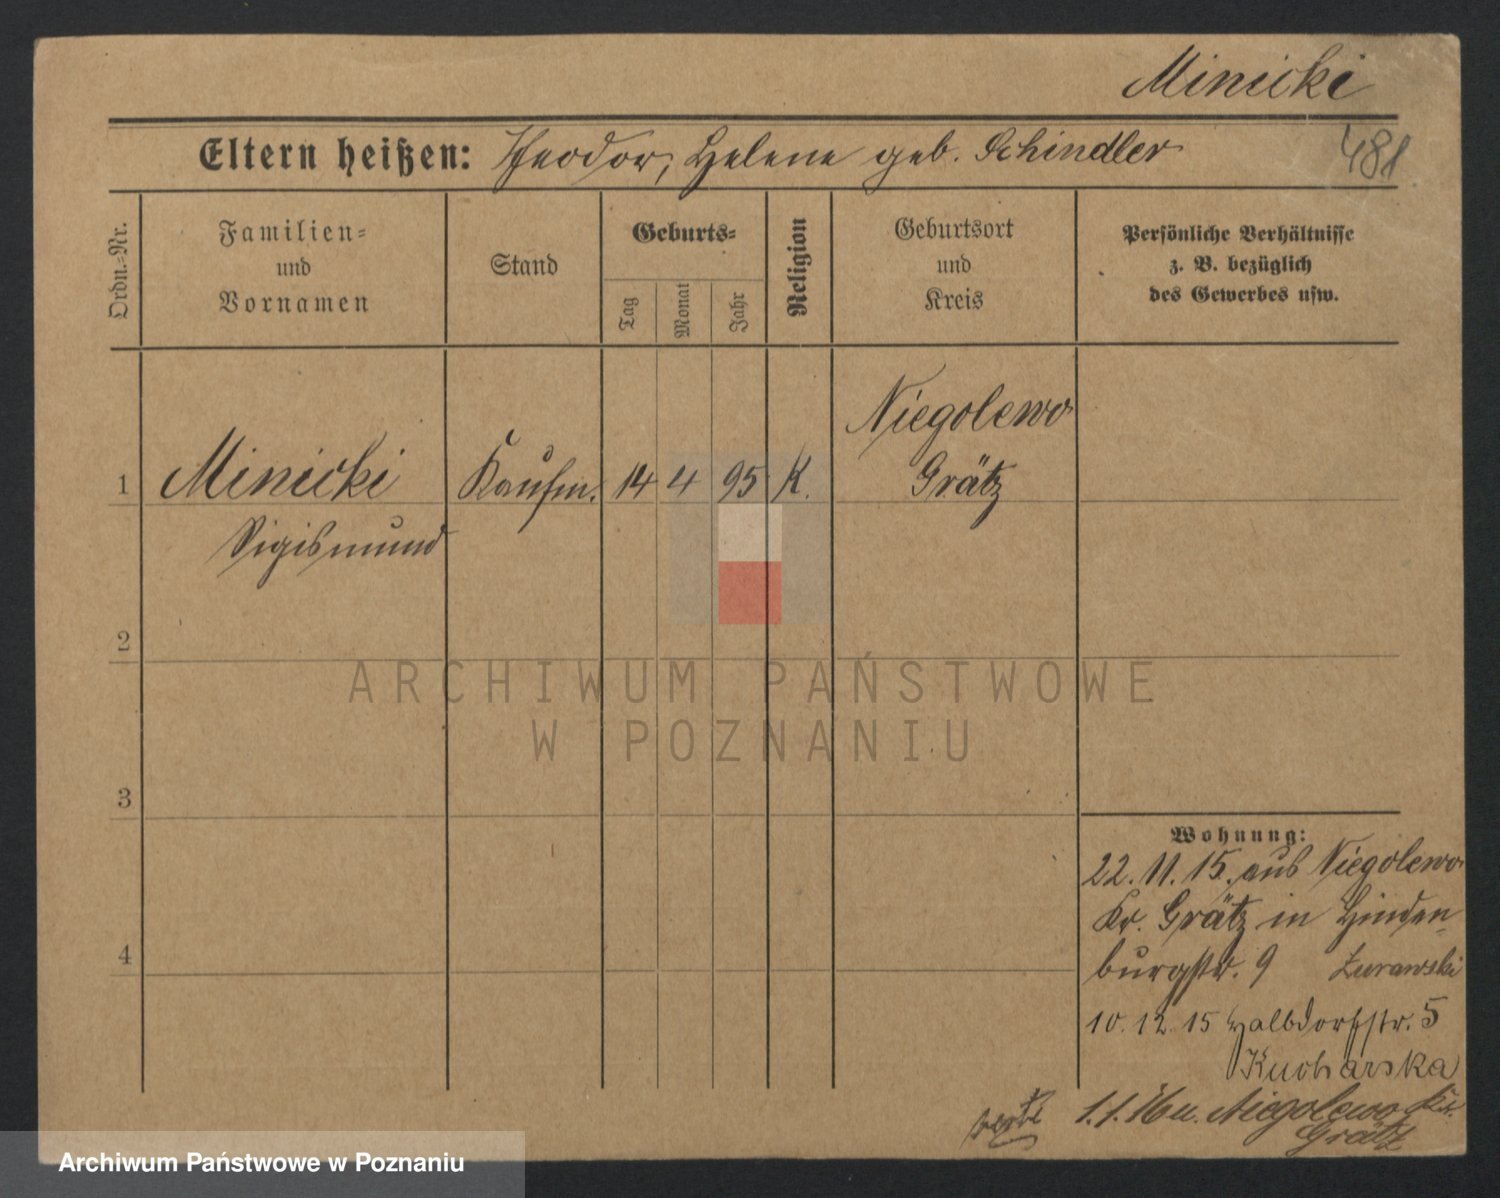 Minicki
Eltern heißen: Theodor, Helene geb. Schindler
481
Ordn.-Nr.
Familien-
und
Vornamen
Stand
Geburts-
Tag
Monat
Jahr
Religion
Geburtsort
und
Kreis
Persönliche Verhältnisse
z. B. bezüglich
des Gewerbes usw.
Niegolewo
1 Minicki Kaufm. 14 4 95 K. Grätz
Sigismund
2
ARCHIWUM PAŃSTWOWE
W POZNANIU
3
Wohnung:
22.11.15. aus Niegolewo
Kr. Grätz in Hinden-
4
burgstr. 9 Żurawski
10.12.15 Halbdorfstr. 5
Kucharska
1.1.16 n. Niegolewo Kr.
Grätz
Archiwum Państwowe w Poznaniu